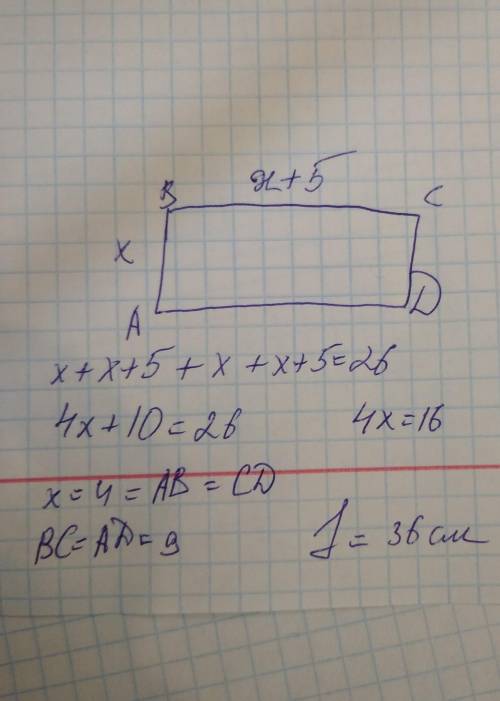 B x+5 C
x
A D
x+x+5+x+x+5=26
4x+10=26 4x=16
x=4=AB=CD
BC=AD=9 S=36см